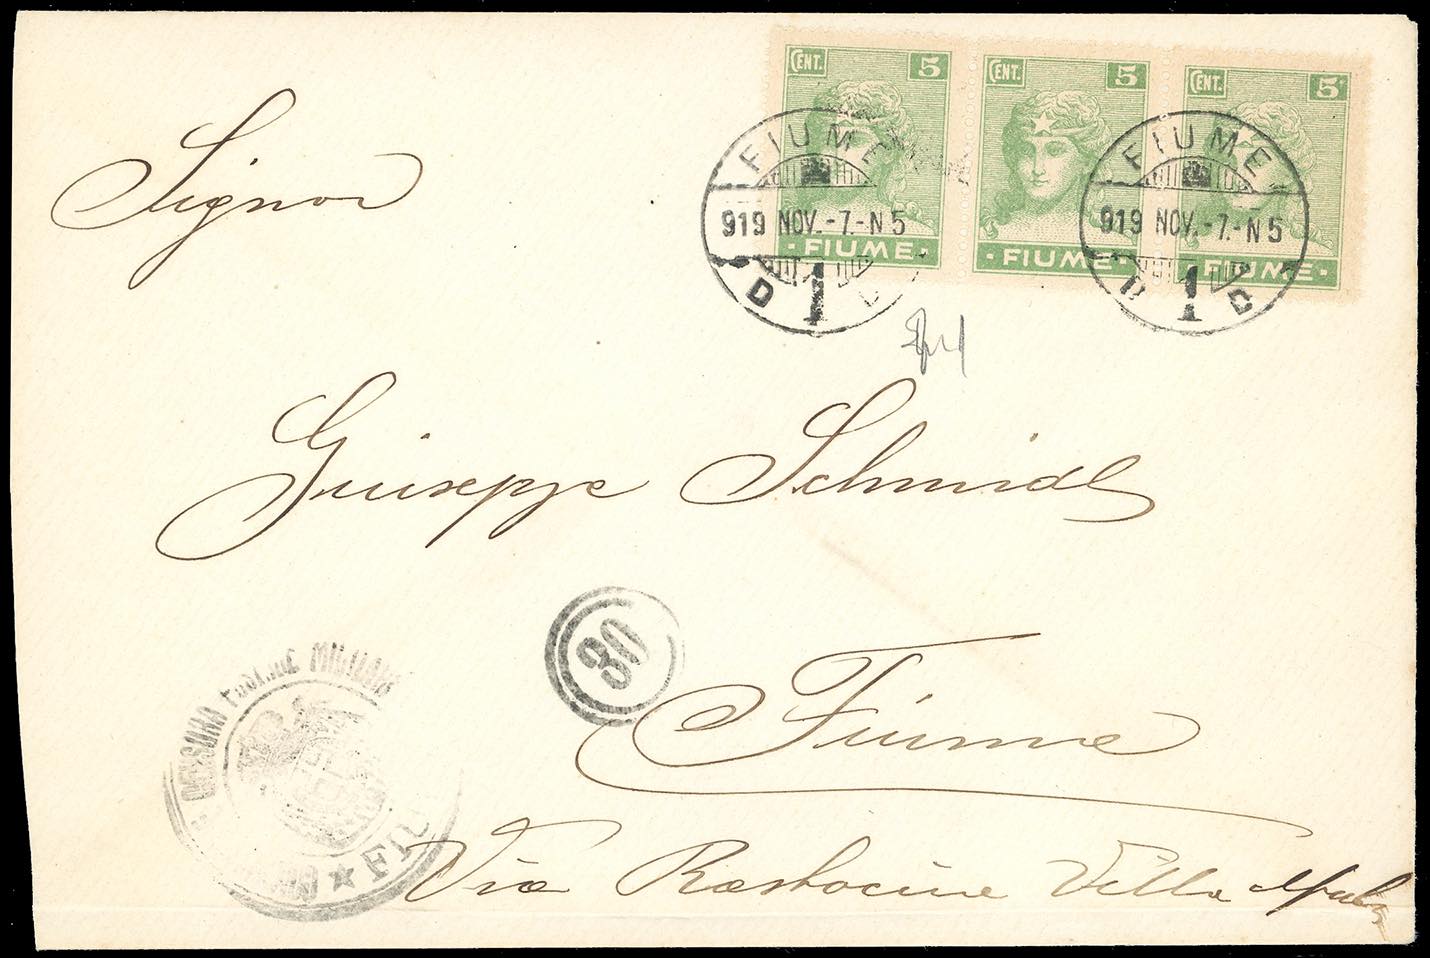 CENT. 5 CENT. 5 CENT. 5
FIUME FIUME
919 NOV.-7.-N5 919 NOV.-7.-N5
· FIUME · · FIUME · · FIUME ·
D 1 C D 1 C
Signor
Giuseppe Schmidl
30
Fiume
CENSURA POSTALE MILITARE
★ FIU
Via Rastocine Villa